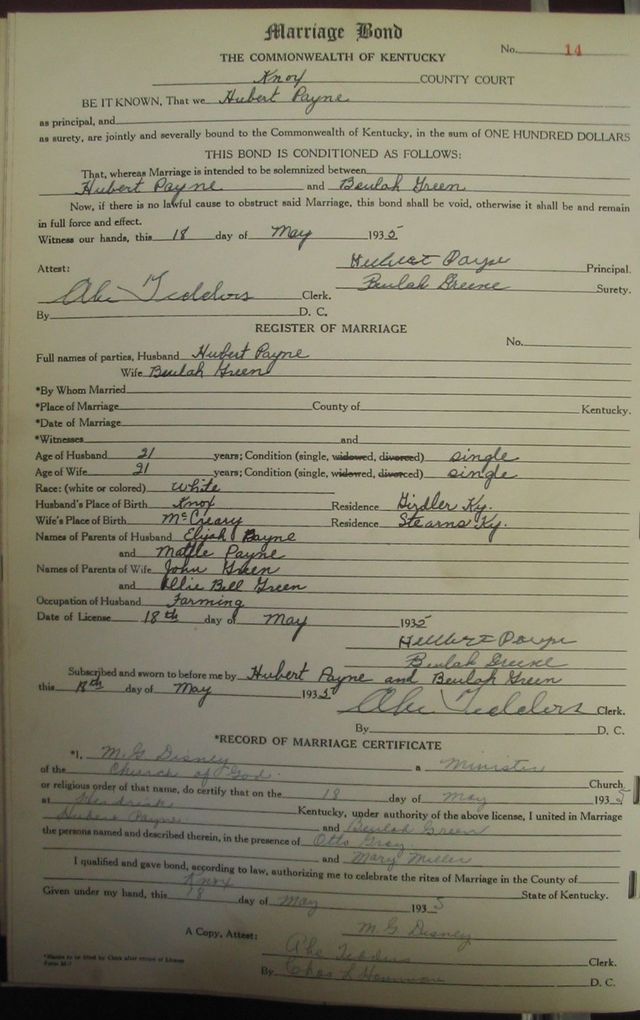 Marriage Bond
No. 14
THE COMMONWEALTH OF KENTUCKY
Knox COUNTY COURT
BE IT KNOWN, That we Hubert Payne
as principal, and
as surety, are jointly and severally bound to the Commonwealth of Kentucky, in the sum of ONE HUNDRED DOLLARS
THIS BOND IS CONDITIONED AS FOLLOWS:
That, whereas Marriage is intended to be solemnized between
Hubert Payne and Beulah Green
Now, if there is no lawful cause to obstruct said Marriage, this bond shall be void, otherwise it shall be and remain
in full force and effect.
Witness our hands, this 18 day of May 1935
Hubert Payne Principal.
Attest: Beulah Greene Surety.
Abe Tedders Clerk.
By D. C.
REGISTER OF MARRIAGE
No.
Full names of parties, Husband Hubert Payne
Wife Beulah Green
*By Whom Married
*Place of Marriage County of Kentucky.
*Date of Marriage
*Witnesses and
Age of Husband 21 years; Condition (single, widowed, divorced) single
Age of Wife 21 years; Condition (single, widowed, divorced) single
Race: (white or colored) White
Husband's Place of Birth Knox Residence Girdler Ky.
Wife's Place of Birth McCreary Residence Stearns Ky.
Names of Parents of Husband Elijah Payne
and Mattie Payne
Names of Parents of Wife John Green
and Ollie Bell Green
Occupation of Husband Farming
Date of License 18th day of May 1935
Hubert Payne
Beulah Greene
Subscribed and sworn to before me by Hubert Payne and Beulah Green
this 18th day of May 1935
Abe Tedders Clerk.
By D. C.
*RECORD OF MARRIAGE CERTIFICATE
*I, M. G. Disney a Minister
of the Church of God Church
or religious order of that name, do certify that on the 18 day of May 1935
at Kentucky, under authority of the above license, I united in Marriage
Hubert Payne and Beulah Green
the persons named and described therein, in the presence of Otto Gray
and Mary Miller
I qualified and gave bond, according to law, authorizing me to celebrate the rites of Marriage in the County of
Knox State of Kentucky.
Given under my hand, this 18 day of May 1935
M. G. Disney
A Copy, Attest: Abe Tedders Clerk.
By Chas D. C.
*Blanks to be filled by Clerk after return of License